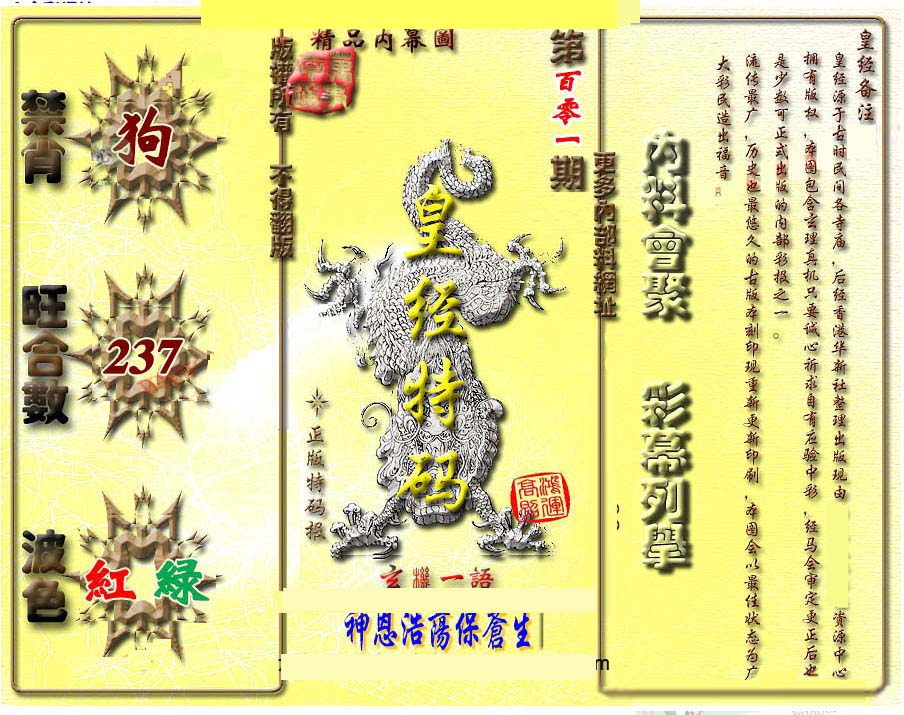 精品内幕圖
版權所有 不得翻版
第百零一期
更多內部料網址
禁肖
狗
旺合數
237
波色
紅 綠
皇经特码
正版特码报
鴻運高照
玄機一語
神恩浩陽保蒼生
m
內料會聚
彩幕列舉
皇经备注
皇经源于古时民间各寺庙，后经香港华新社整理出版现由 资源中心
拥有版权，本图包含玄理真机只要诚心祈求自有应验中彩，经马会审定更正后也
是少数可正式出版的内部彩报之一。
流传最广，历史也最悠久的古版本刻印现重新更新印刷，本图会以最佳状态为广
大彩民造出福音